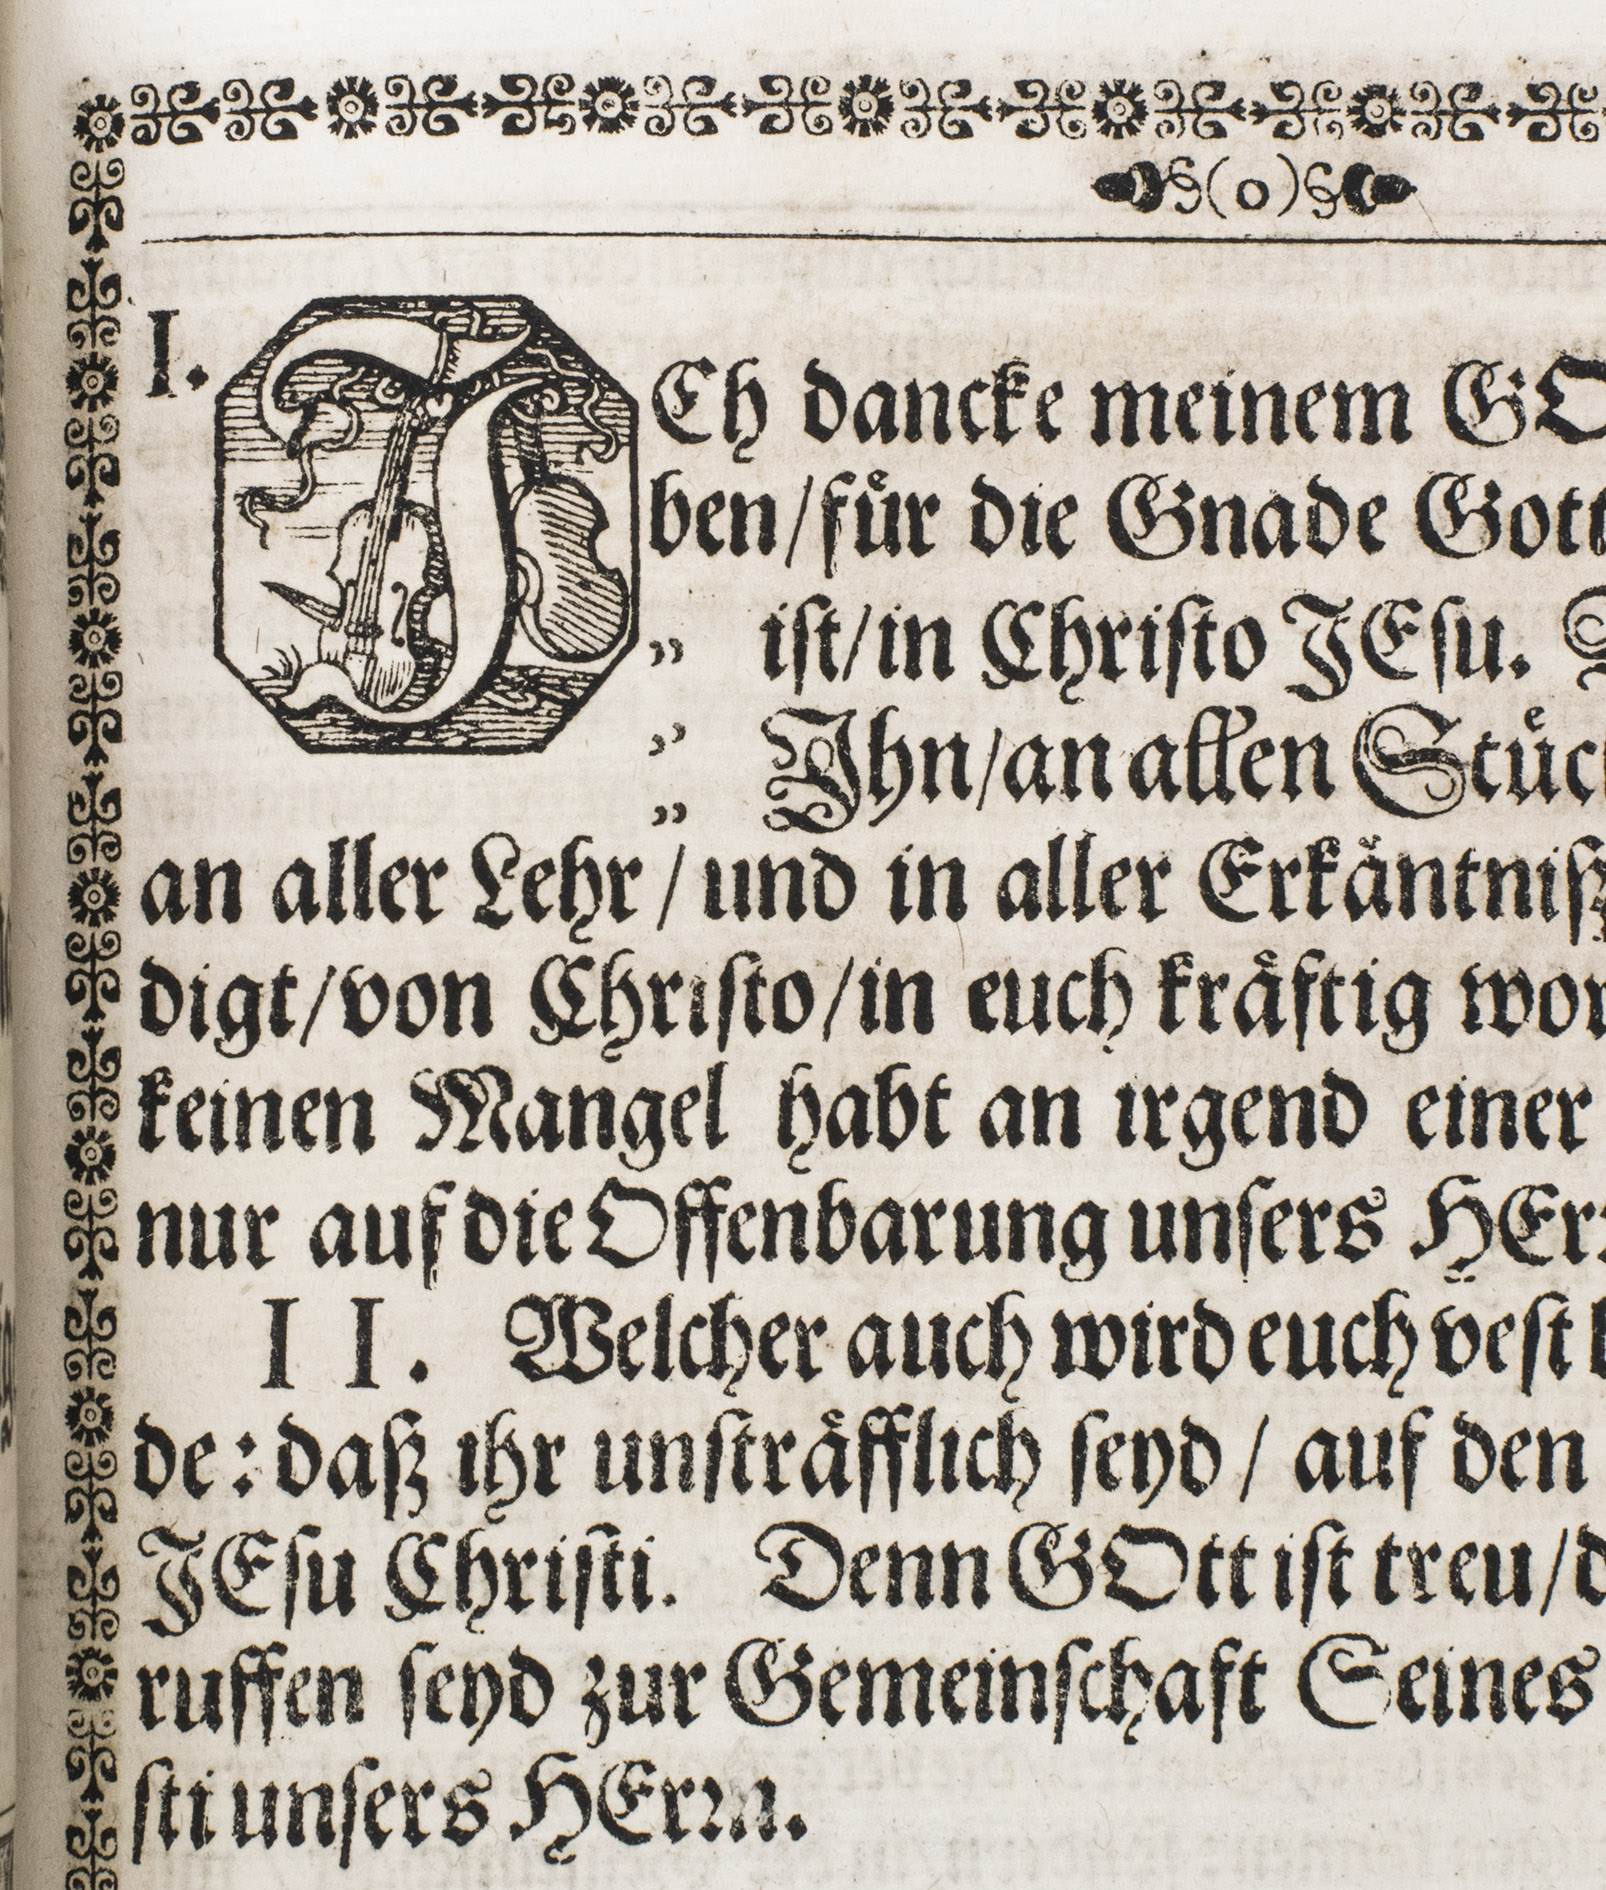 (o)
I. JCh dancke meinem GO
ben/fuͤr die Gnade Gott
„ ist/in Christo JEsu.
„ Jhn/an allen Stuͤc
„
an aller Lehr/und in aller Erkaͤntniß
digt/von Christo/in euch kraͤftig wor
keinen Mangel habt an irgend einer
nur auf die Offenbarung unsers HErr
II. Welcher auch wird euch vest b
de: daß ihr unstraͤfflich seyd/auf den
JEsu Christi. Denn GOtt ist treu/d
ruffen seyd zur Gemeinschaft Seines
sti unsers HErrn.